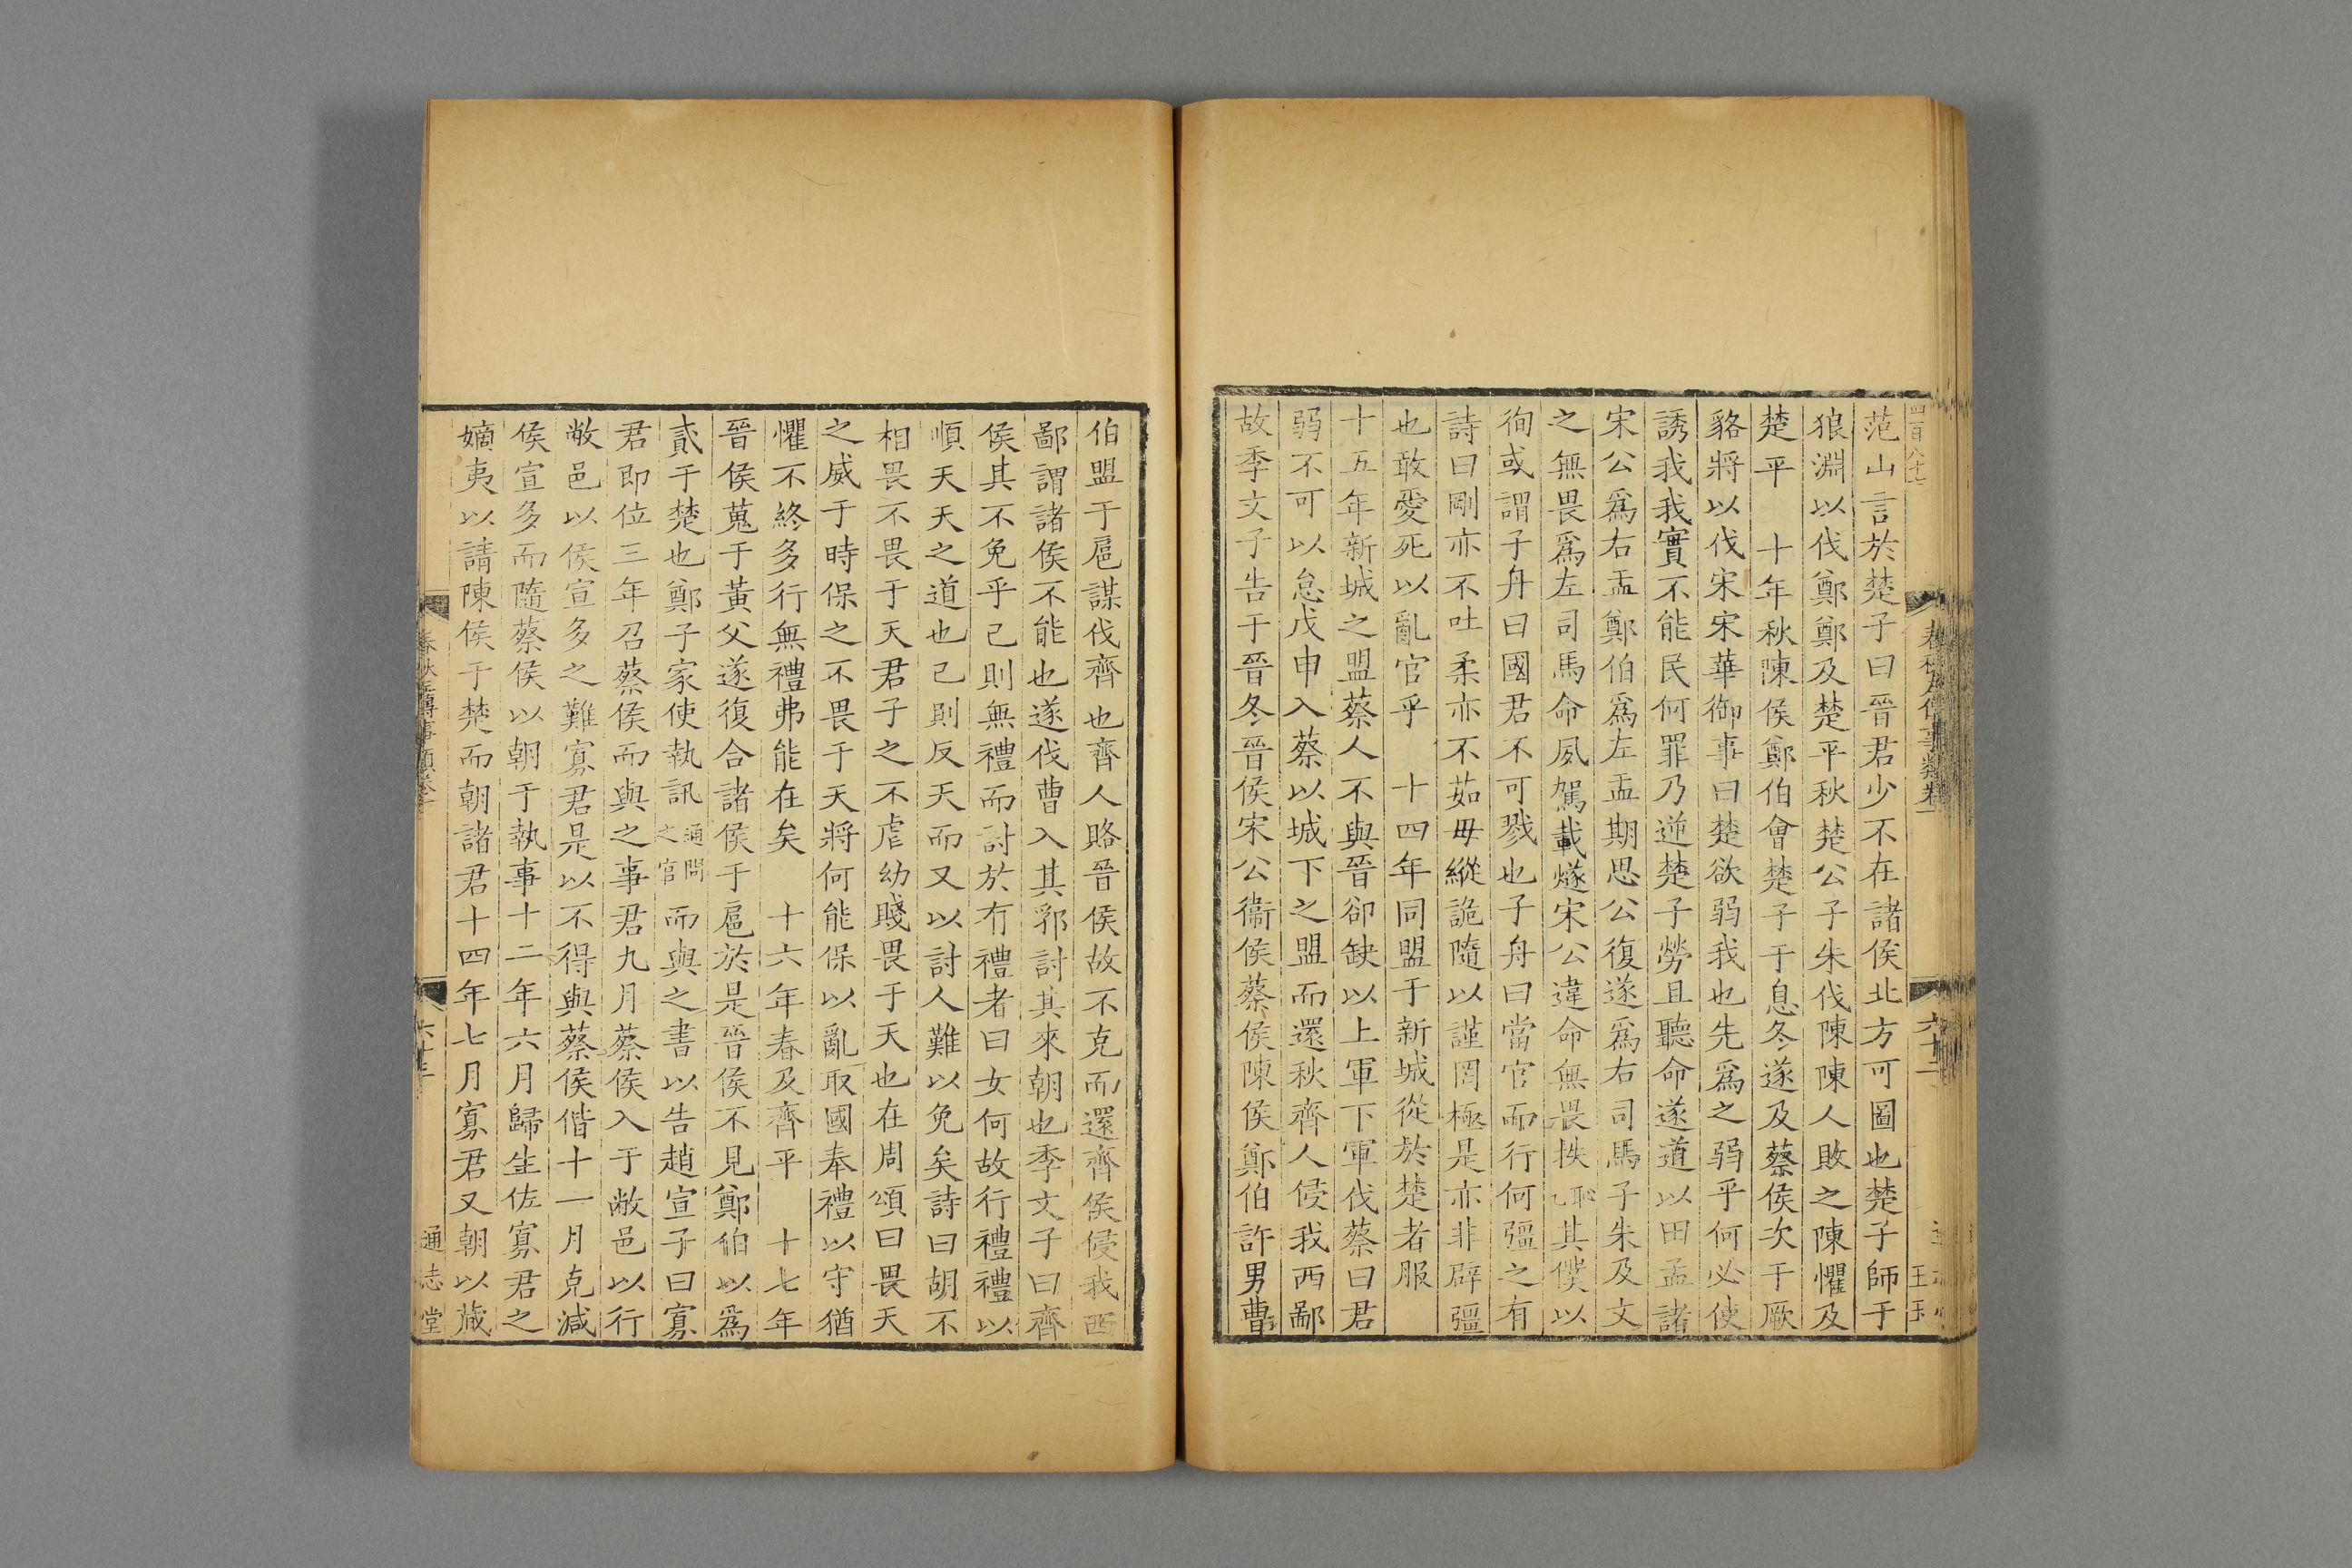 范山言於楚子曰晉君少不在諸侯北方可圖也楚子師于
狼淵以伐鄭鄭及楚平秋楚公子朱伐陳陳人敗之陳懼及
楚平　十年秋陳侯鄭伯會楚子于息冬遂及蔡侯次于厥
貉將以伐宋宋華御事曰楚欲弱我也先爲之弱乎何必使
誘我我實不能民何罪乃逆楚子勞且聽命遂道以田孟諸
宋公爲右盂鄭伯爲左盂期思公復遂爲右司馬子朱及文
之無畏爲左司馬命夙駕載燧宋公違命無畏抶其僕以
徇或謂子舟曰國君不可戮也子舟曰當官而行何彊之有
詩曰剛亦不吐柔亦不茹毋縱詭隨以謹罔極是亦非辟彊
也敢愛死以亂官乎　十四年同盟于新城從於楚者服
十五年新城之盟蔡人不與晉郤缺以上軍下軍伐蔡曰君
弱不可以怠戊申入蔡以城下之盟而還秋齊人侵我西鄙
故季文子告于晉冬晉侯宋公衞侯蔡侯陳侯鄭伯許男曹
伯盟于扈謀伐齊也齊人賂晉侯故不克而還齊侯侵我西
鄙謂諸侯不能也遂伐曹入其郛討其來朝也季文子曰齊
侯其不免乎己則無禮而討於有禮者曰女何故行禮禮以
順天天之道也己則反天而又以討人難以免矣詩曰胡不
相畏不畏于天君子之不虐幼賤畏于天也在周頌曰畏天
之威于時保之不畏于天將何能保以亂取國奉禮以守猶
懼不終多行無禮弗能在矣　十六年春及齊平　十七年
晉侯蒐于黃父遂復合諸侯于扈於是晉侯不見鄭伯以爲
貳于楚也鄭子家使執訊通問之官而與之書以告趙宣子曰寡
君即位三年召蔡侯而與之事君九月蔡侯入于敝邑以行
敝邑以侯宣多之難寡君是以不得與蔡侯偕十一月克減
侯宣多而隨蔡侯以朝于執事十二年六月歸生佐寡君之
嫡夷以請陳侯于楚而朝諸君十四年七月寡君又朝以蕆
六十三
通志堂